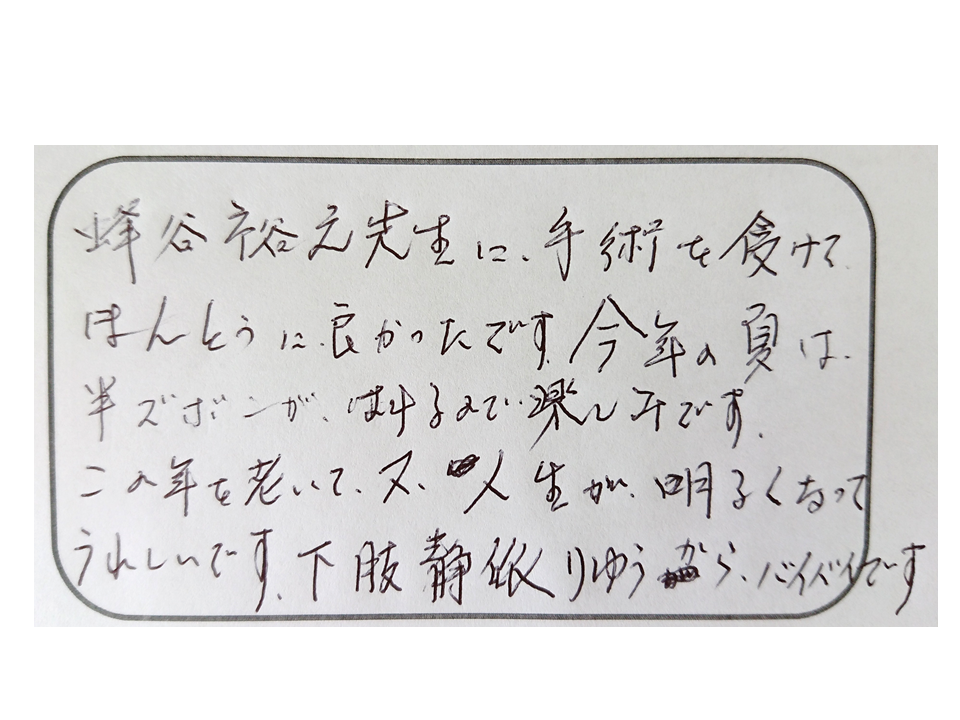 蜂谷裕之先生に、手術を受けて、
ほんとうに良かったです。今年の夏は、
半ズボンが、はけるので楽しみです。
この年を老いて、又、人生が、明るくなって
うれしいです。下肢静脈りゅうから、バイバイです